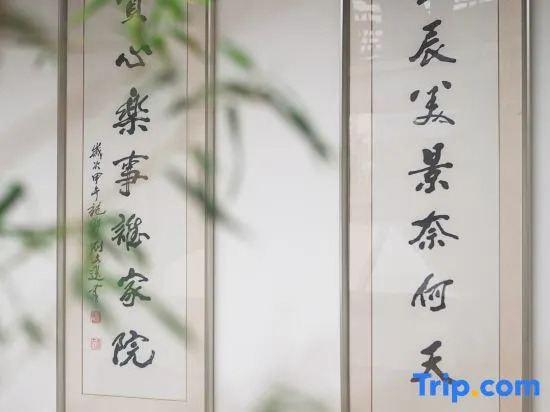 辰美景奈何天
賞心楽事誰家院
歲次甲午
Trip.com